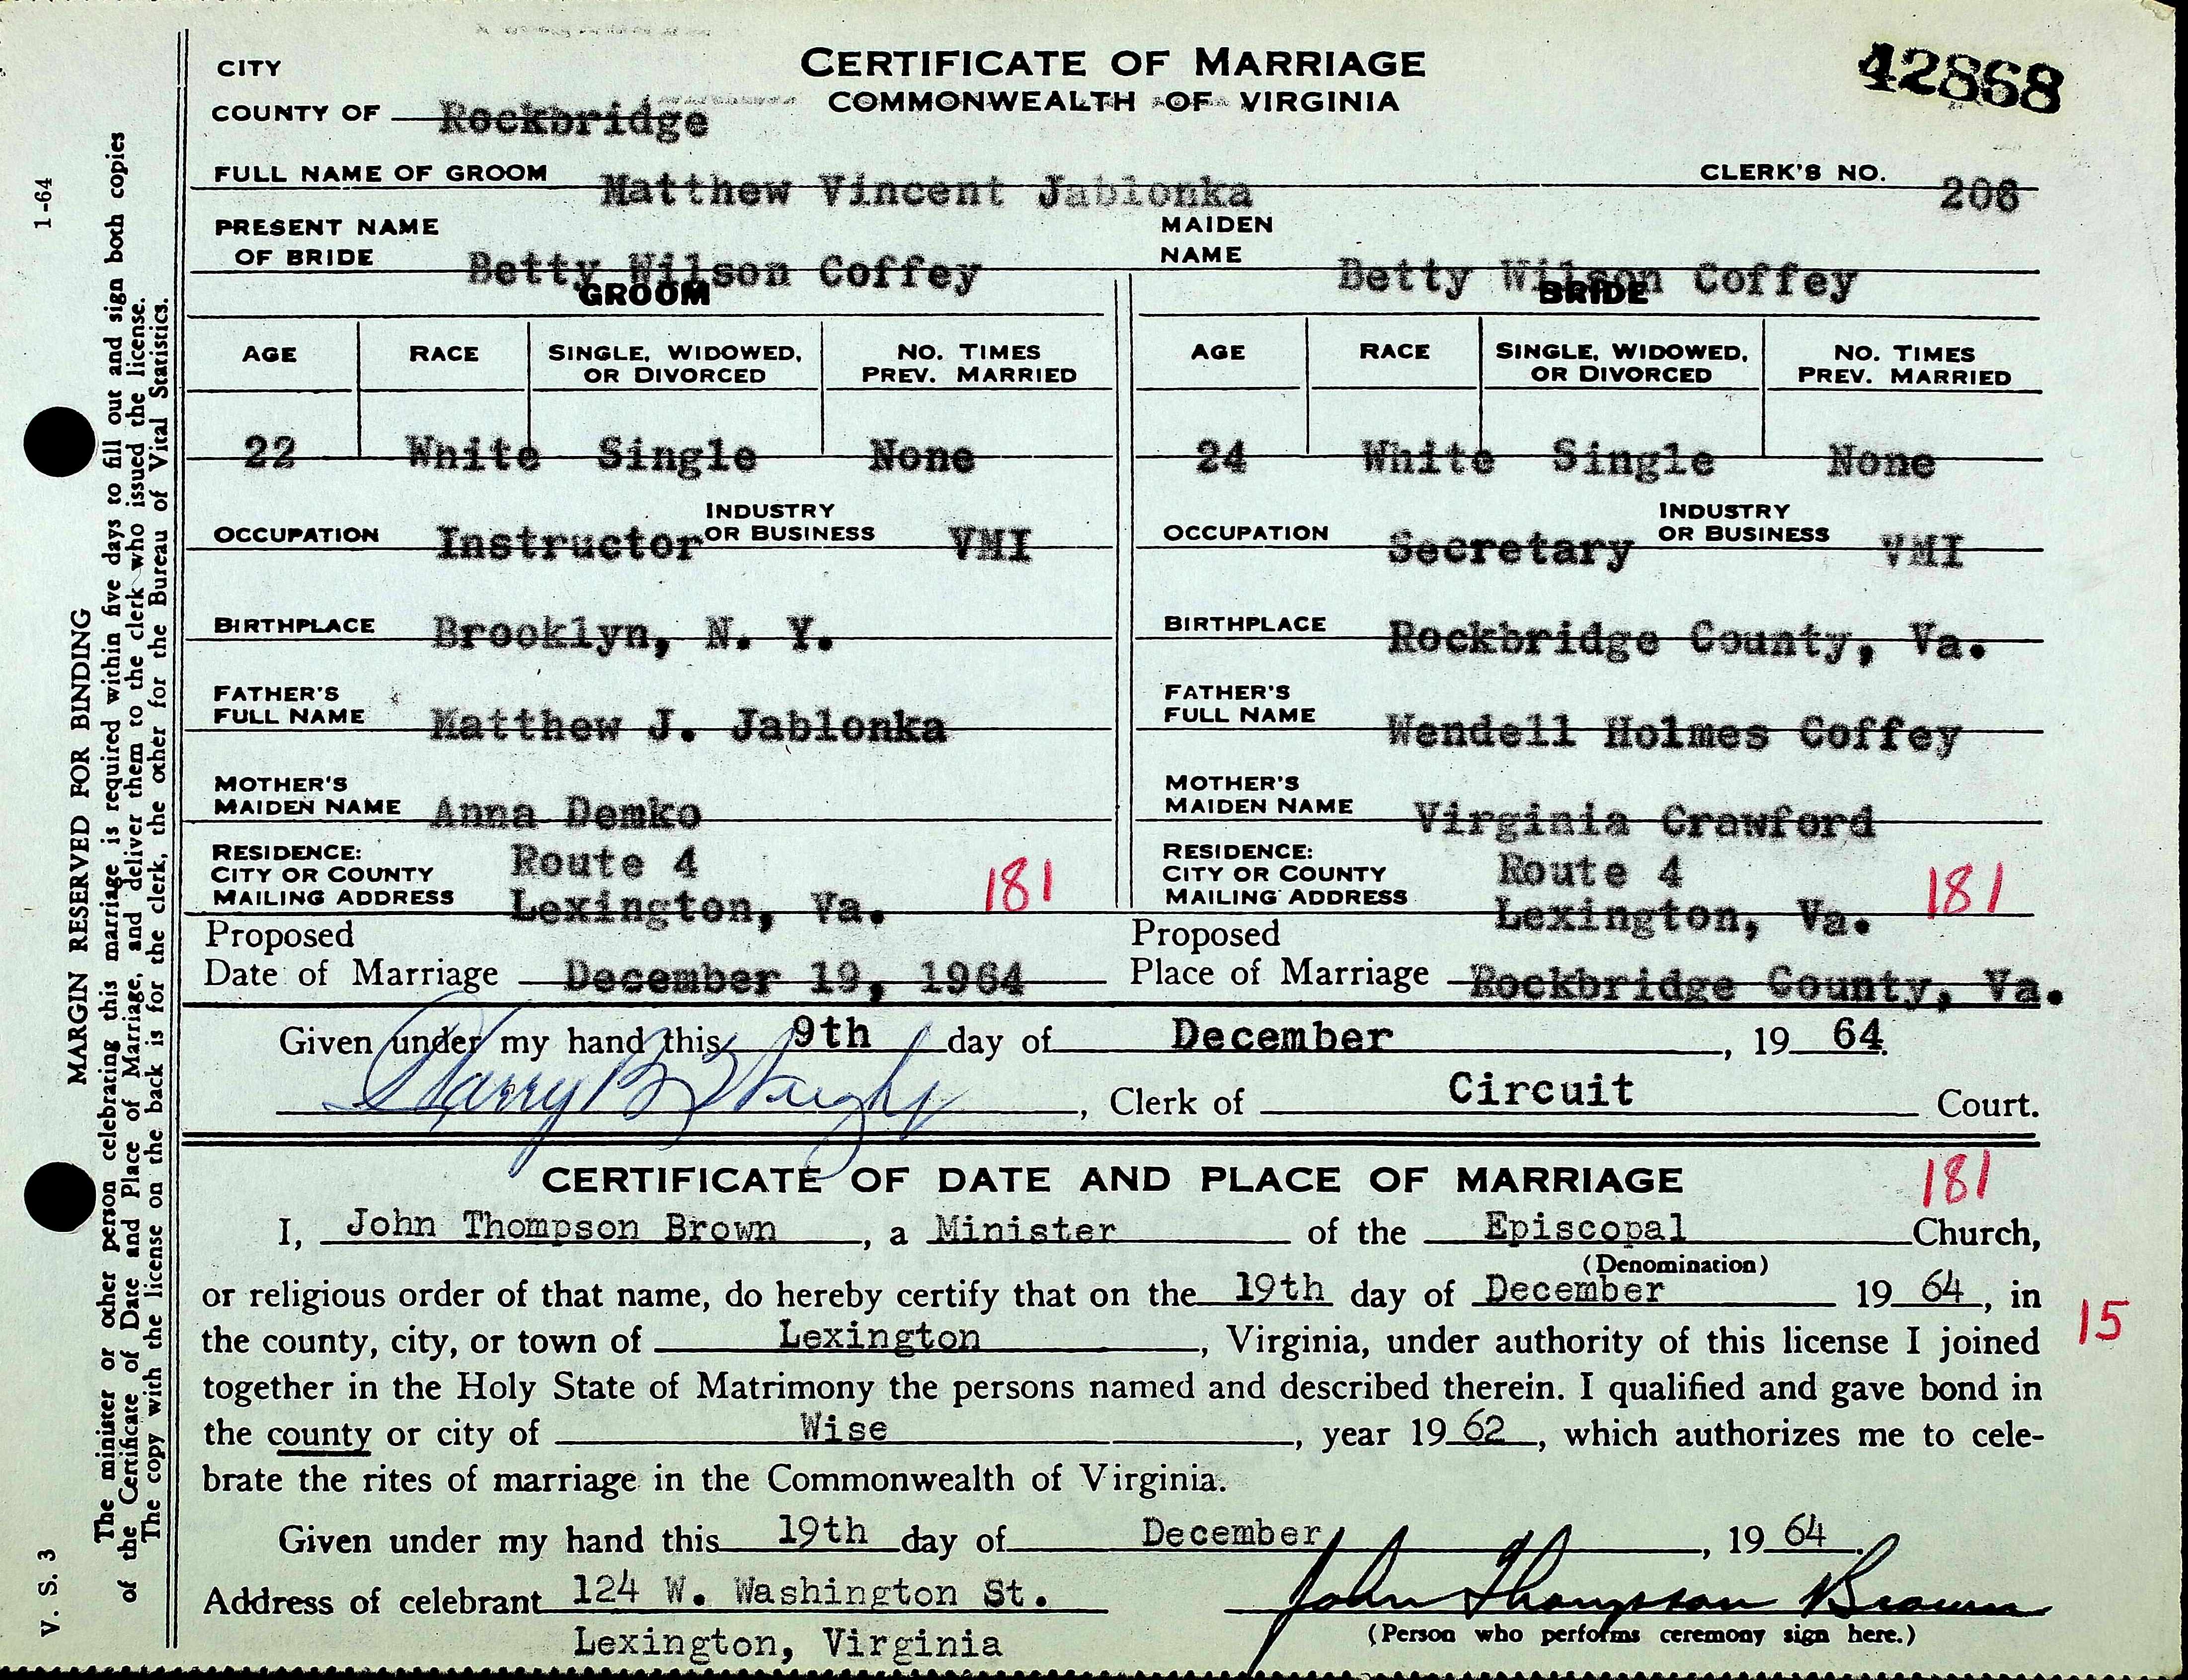 CERTIFICATE OF MARRIAGE
COMMONWEALTH OF VIRGINIA
42868
CITY
COUNTY OF Rockbridge
FULL NAME OF GROOM Matthew Vincent Jablonka CLERK'S NO. 206
PRESENT NAME OF BRIDE Betty Wilson Coffey MAIDEN NAME Betty Wilson Coffey
GROOM
AGE RACE SINGLE, WIDOWED, OR DIVORCED NO. TIMES PREV. MARRIED
22 White Single None
OCCUPATION Instructor INDUSTRY OR BUSINESS VMI
BIRTHPLACE Brooklyn, N. Y.
FATHER'S FULL NAME Matthew J. Jablonka
MOTHER'S MAIDEN NAME Anna Demko
RESIDENCE: Route 4
CITY OR COUNTY
MAILING ADDRESS Lexington, Va. 181
BRIDE
AGE RACE SINGLE, WIDOWED, OR DIVORCED NO. TIMES PREV. MARRIED
24 White Single None
OCCUPATION Secretary INDUSTRY OR BUSINESS VMI
BIRTHPLACE Rockbridge County, Va.
FATHER'S FULL NAME Wendell Holmes Coffey
MOTHER'S MAIDEN NAME Virginia Crawford
RESIDENCE: Route 4
CITY OR COUNTY
MAILING ADDRESS Lexington, Va. 181
Proposed Date of Marriage December 19, 1964
Proposed Place of Marriage Rockbridge County, Va.
Given under my hand this 9th day of December, 19 64
Harry B. , Clerk of Circuit Court.
CERTIFICATE OF DATE AND PLACE OF MARRIAGE
181
I, John Thompson Brown, a Minister of the Episcopal Church,
(Denomination)
or religious order of that name, do hereby certify that on the 19th day of December 19 64, in
the county, city, or town of Lexington, Virginia, under authority of this license I joined
15
together in the Holy State of Matrimony the persons named and described therein. I qualified and gave bond in
the county or city of Wise, year 19 62, which authorizes me to cele-
brate the rites of marriage in the Commonwealth of Virginia.
Given under my hand this 19th day of December, 19 64.
Address of celebrant 124 W. Washington St. John Thompson Brown
Lexington, Virginia (Person who performs ceremony sign here.)
1-64
MARGIN RESERVED FOR BINDING
The minister or other person celebrating this marriage is required within five days to fill out and sign both copies
of the Certificate of Date and Place of Marriage, and deliver them to the clerk who issued the license.
The copy with the license on the back is for the clerk, the other for the Bureau of Vital Statistics.
V. S. 3